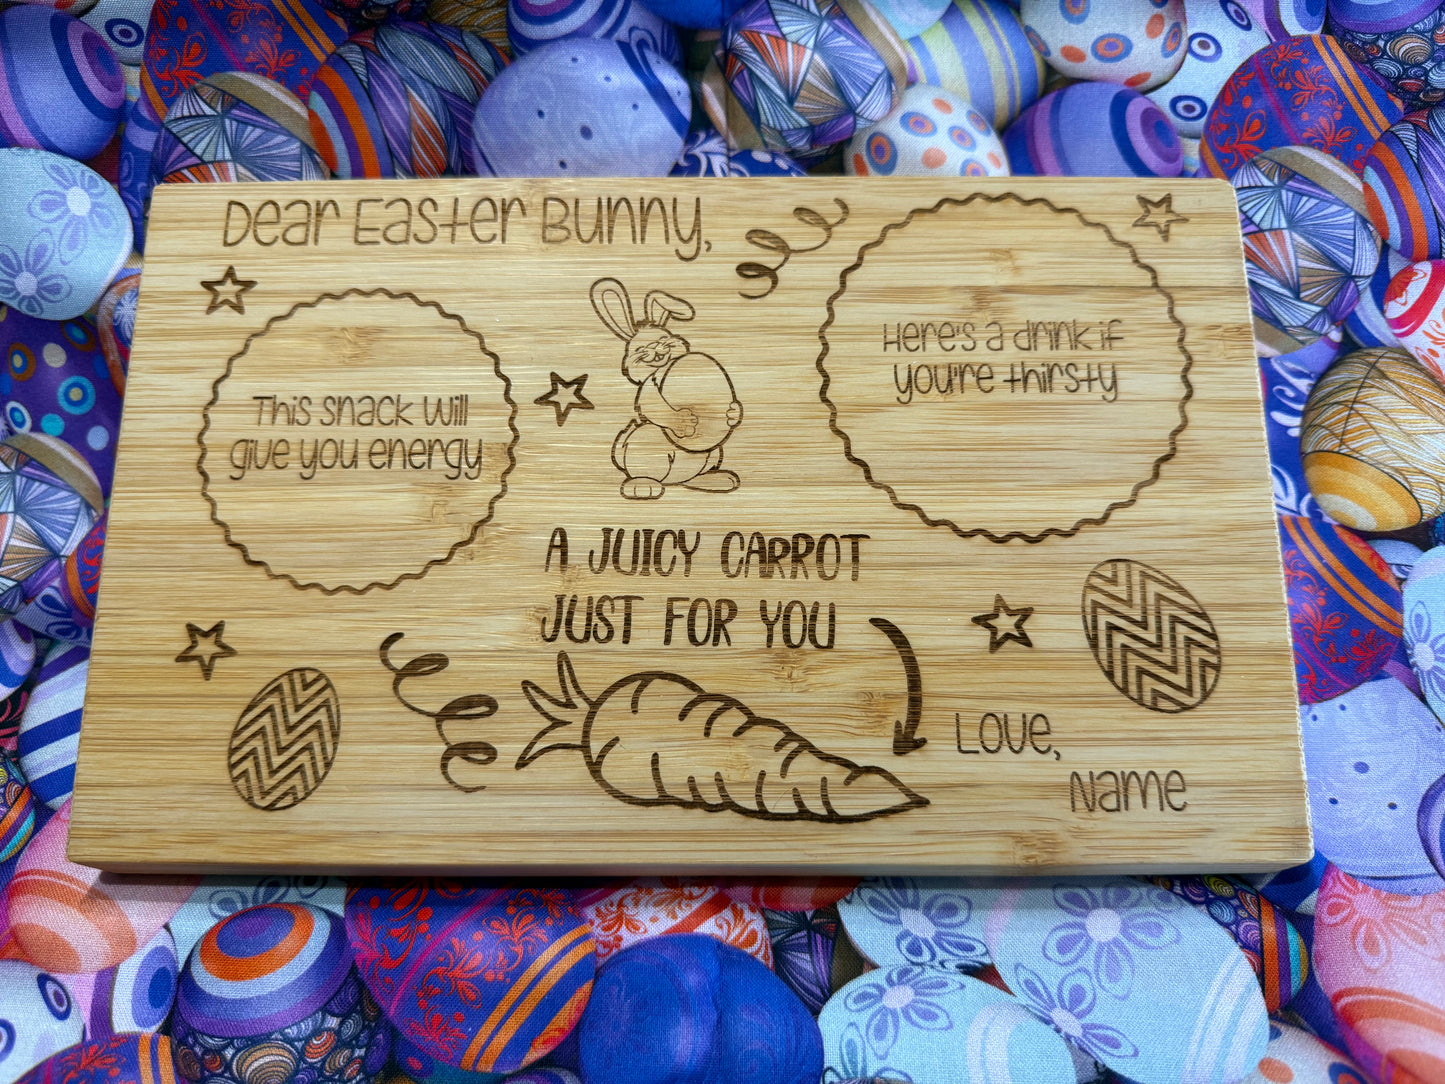 Dear Easter Bunny,
This snack will
give you energy
Here's a drink if
you're thirsty
A JUICY CARROT
JUST FOR YOU
Love,
Name